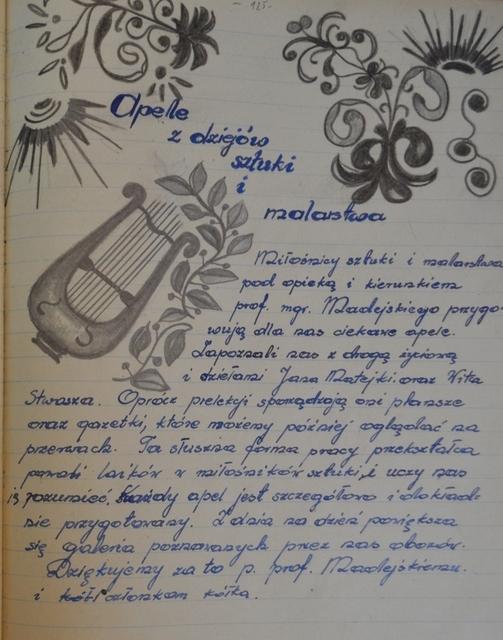 - 125 -
Apele
z dziejów
sztuki
i
malarstwa
Miłośnicy sztuki i malarstwa
pod opieką i kierunkiem
prof. mgr. Madejskiego przygo-
wują dla nas ciekawe apele.
Zapoznali nas z drogą życiową
i dziełami Jana Matejki oraz Wita
Stwosza. Oprócz prelekcji sporządzają oni plansze
oraz gazetki, które możemy później oglądać na
przerwach. Ta słuszna forma pracy przekształca
powoli laików w miłośników sztuki, i uczy nas
ją rozumieć. Każdy apel jest szczegółowo i dokład-
nie przygotowany. Z dnia na dzień powiększa
się galeria poznawanych przez nas obrazów.
Dziękujemy za to p. prof. Madejskiemu
i członkom kółka.